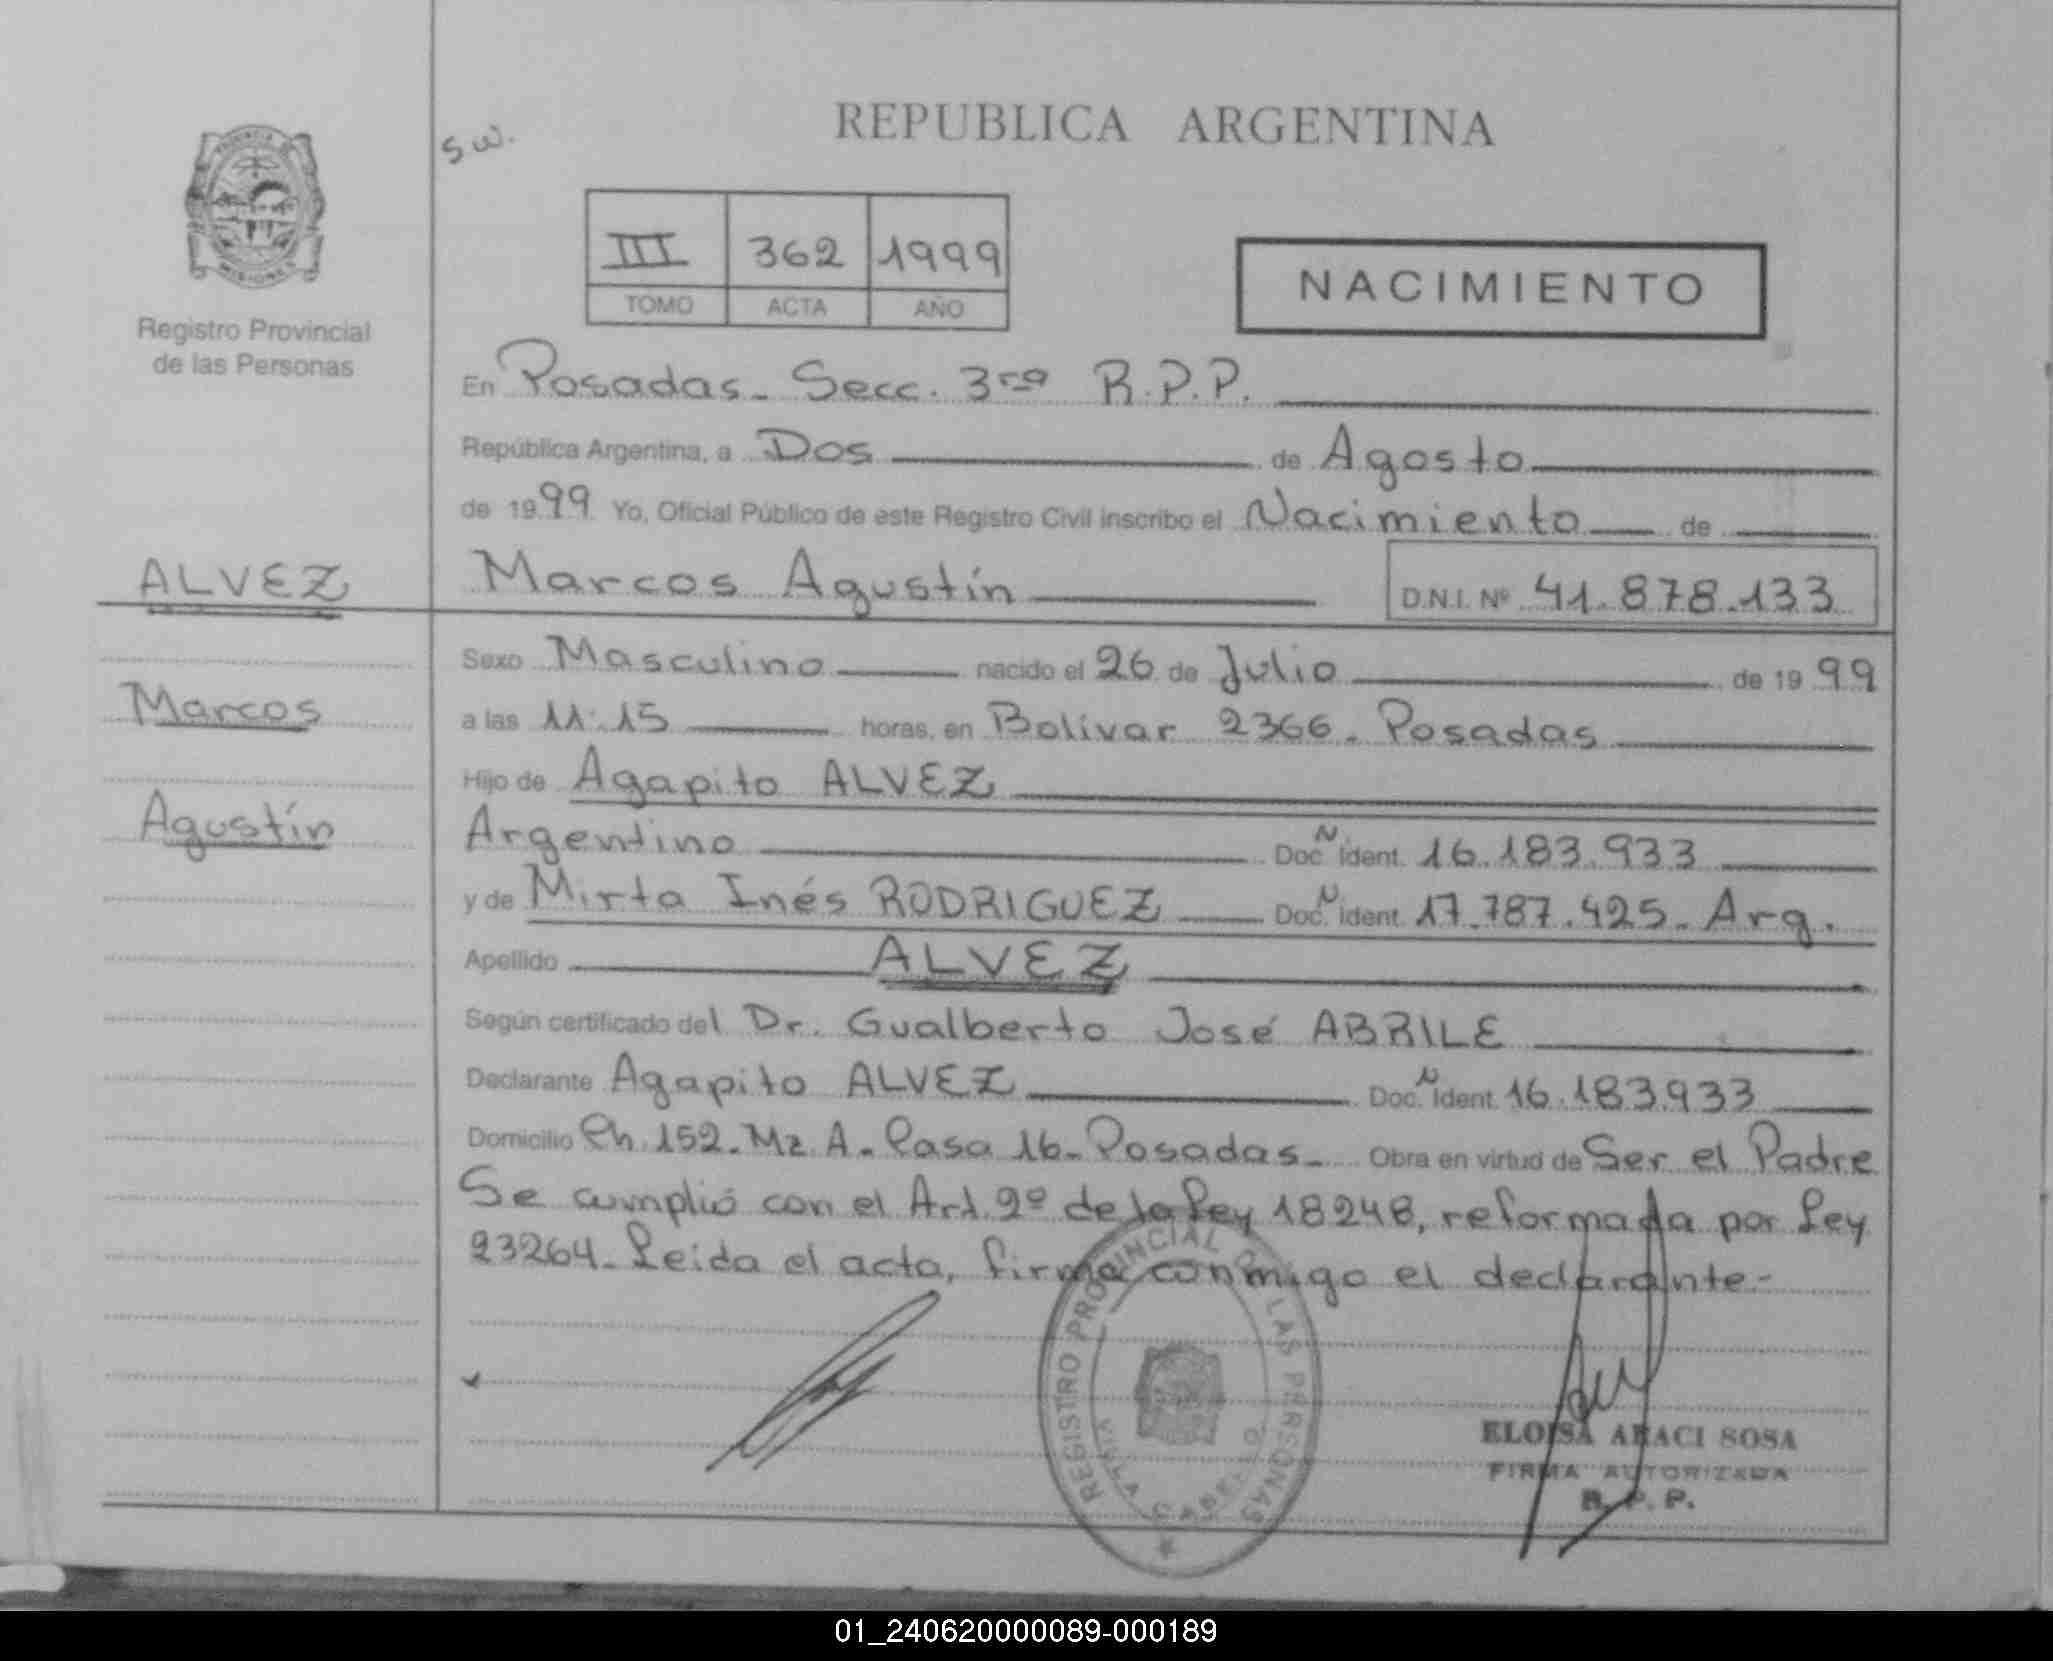 REPUBLICA ARGENTINA
s.w.
PROVINCIA
MISIONES
Registro Provincial
de las Personas
III 362 1999
TOMO ACTA AÑO
NACIMIENTO
En Posadas - Secc. 3ra R.P.P.
República Argentina, a Dos de Agosto
de 1999 Yo, Oficial Público de este Registro Civil inscribo el Nacimiento de
ALVEZ
Marcos Agustín D.N.I. Nº 41.878.133
Sexo Masculino nacido el 26 de Julio de 1999
Marcos
a las 11:15 horas, en Bolívar 2366 - Posadas
Hijo de Agapito ALVEZ
Agustín
Argentino Doc. N Ident. 16.183.933
y de Mirta Inés RODRIGUEZ Doc. N Ident. 17.787.425 - Arg.
Apellido ALVEZ
Según certificado del Dr. Gualberto José ABRILE
Declarante Agapito ALVEZ Doc. N Ident. 16.183.933
Domicilio Ch. 152 - Mz. A - Casa 16 - Posadas - Obra en virtud de Ser el Padre
Se cumplió con el Art. 2º de la Ley 18248, reformada por Ley
23264 - Leida el acta, firma conmigo el declarante.-
REGISTRO PROVINCIAL DE LAS PERSONAS
VILLA CABELLO
ELOISA ARACI SOSA
FIRMA AUTORIZADA
R. P. P.
01_240620000089-000189